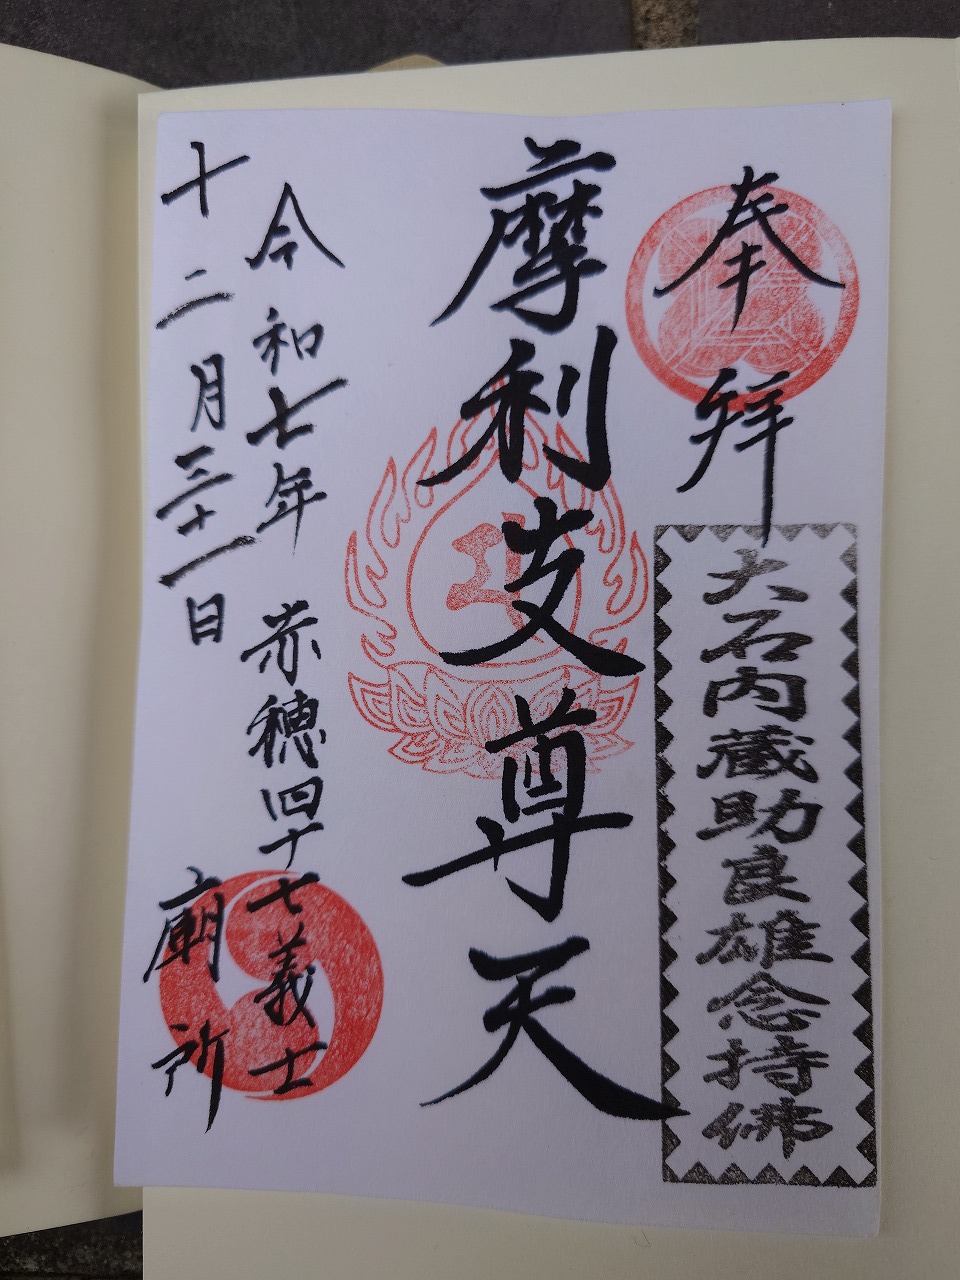 奉拝
大石内蔵助良雄念持佛
摩利支尊天
令和七年 赤穂四十七義士
十二月三十一日 廟所